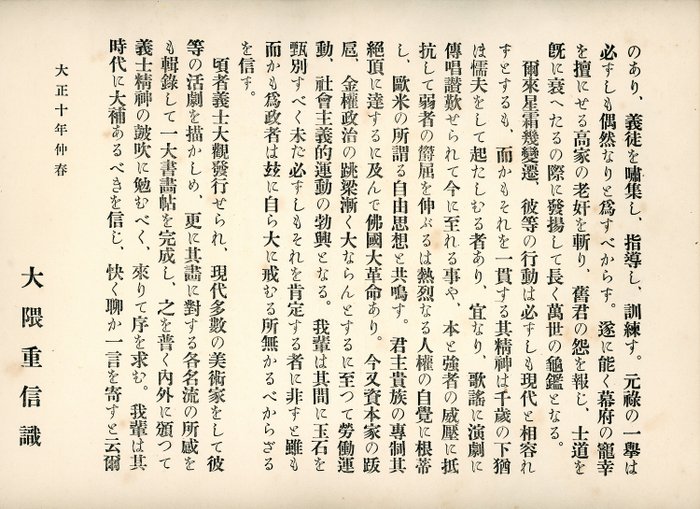 のあり、義徒を嘯集し、指導し、訓練す。元祿の一擧は
必ずしも偶然なりと爲すべからず。遂に能く幕府の寵幸
を擅にせる高家の老奸を斬り、舊君の怨を報じ、士道を
既に衰へたるの際に發揚して長く萬世の龜鑑となる。
爾來星霜幾變遷、彼等の行動は必ずしも現代と相容れ
ずとするも、而かもそれを一貫する其精神は千歳の下猶
ほ懦夫をして起たしむる者あり、宜なり、歌謠に演劇に
傳唱讃歎せられて今に至れる事や、本と強者の威壓に抵
抗して弱者の欝屈を伸ぶるは熱烈なる人權の自覺に根蔕
し、歐米の所謂る自由思想と共鳴す。君主貴族の專制其
絕頂に達するに及んで佛國大革命あり。今又資本家の跋
扈、金權政治の跳梁漸く大ならんとするに至つて勞働運
動、社會主義的運動の勃興となる。我輩は其間に玉石を
甄別すべく未だ必ずしもそれを肯定する者に非ずと雖も
而かも爲政者は玆に自ら大に戒むる所無かるべからざる
を信ず。
頃者義士大觀發行せられ、現代多數の美術家をして彼
等の活劇を描かしめ、更に其畫に對する各名流の所感を
も輯錄して一大書畫帖を完成し、之を普く內外に頒つて
義士精神の皷吹に勉むべく、來りて序を求む。我輩は其
時代に大補あるべきを信じ、快く聊か一言を寄すと云爾
大正十年仲春
大隈重信識